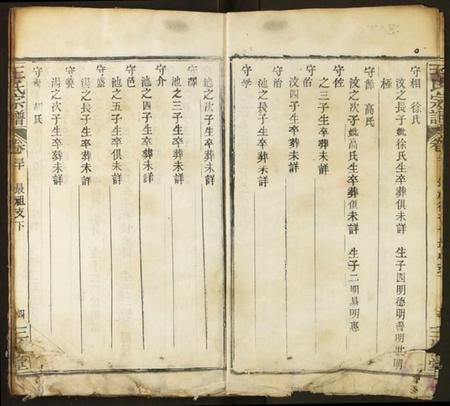 守相 徐氏
汶之長子妣徐氏生卒葬俱未詳 生子四明德明晋明世明
極
守節 高氏
汶之次子妣高氏生卒葬俱未詳 生子二明易明惠
守佐
之三子生卒葬未詳
守佑
汶四子生卒葬未詳
守治
生卒葬未詳
守学
池之次子生卒葬未詳
守
池之三子生卒葬未詳
守介
池之四子生卒葬未詳
守邑
池之五子生卒俱未詳
守盛
湯之長子生卒葬未詳
守
湯之次子生卒葬未詳
守 氏
王氏宗譜 卷 最祖支下 四